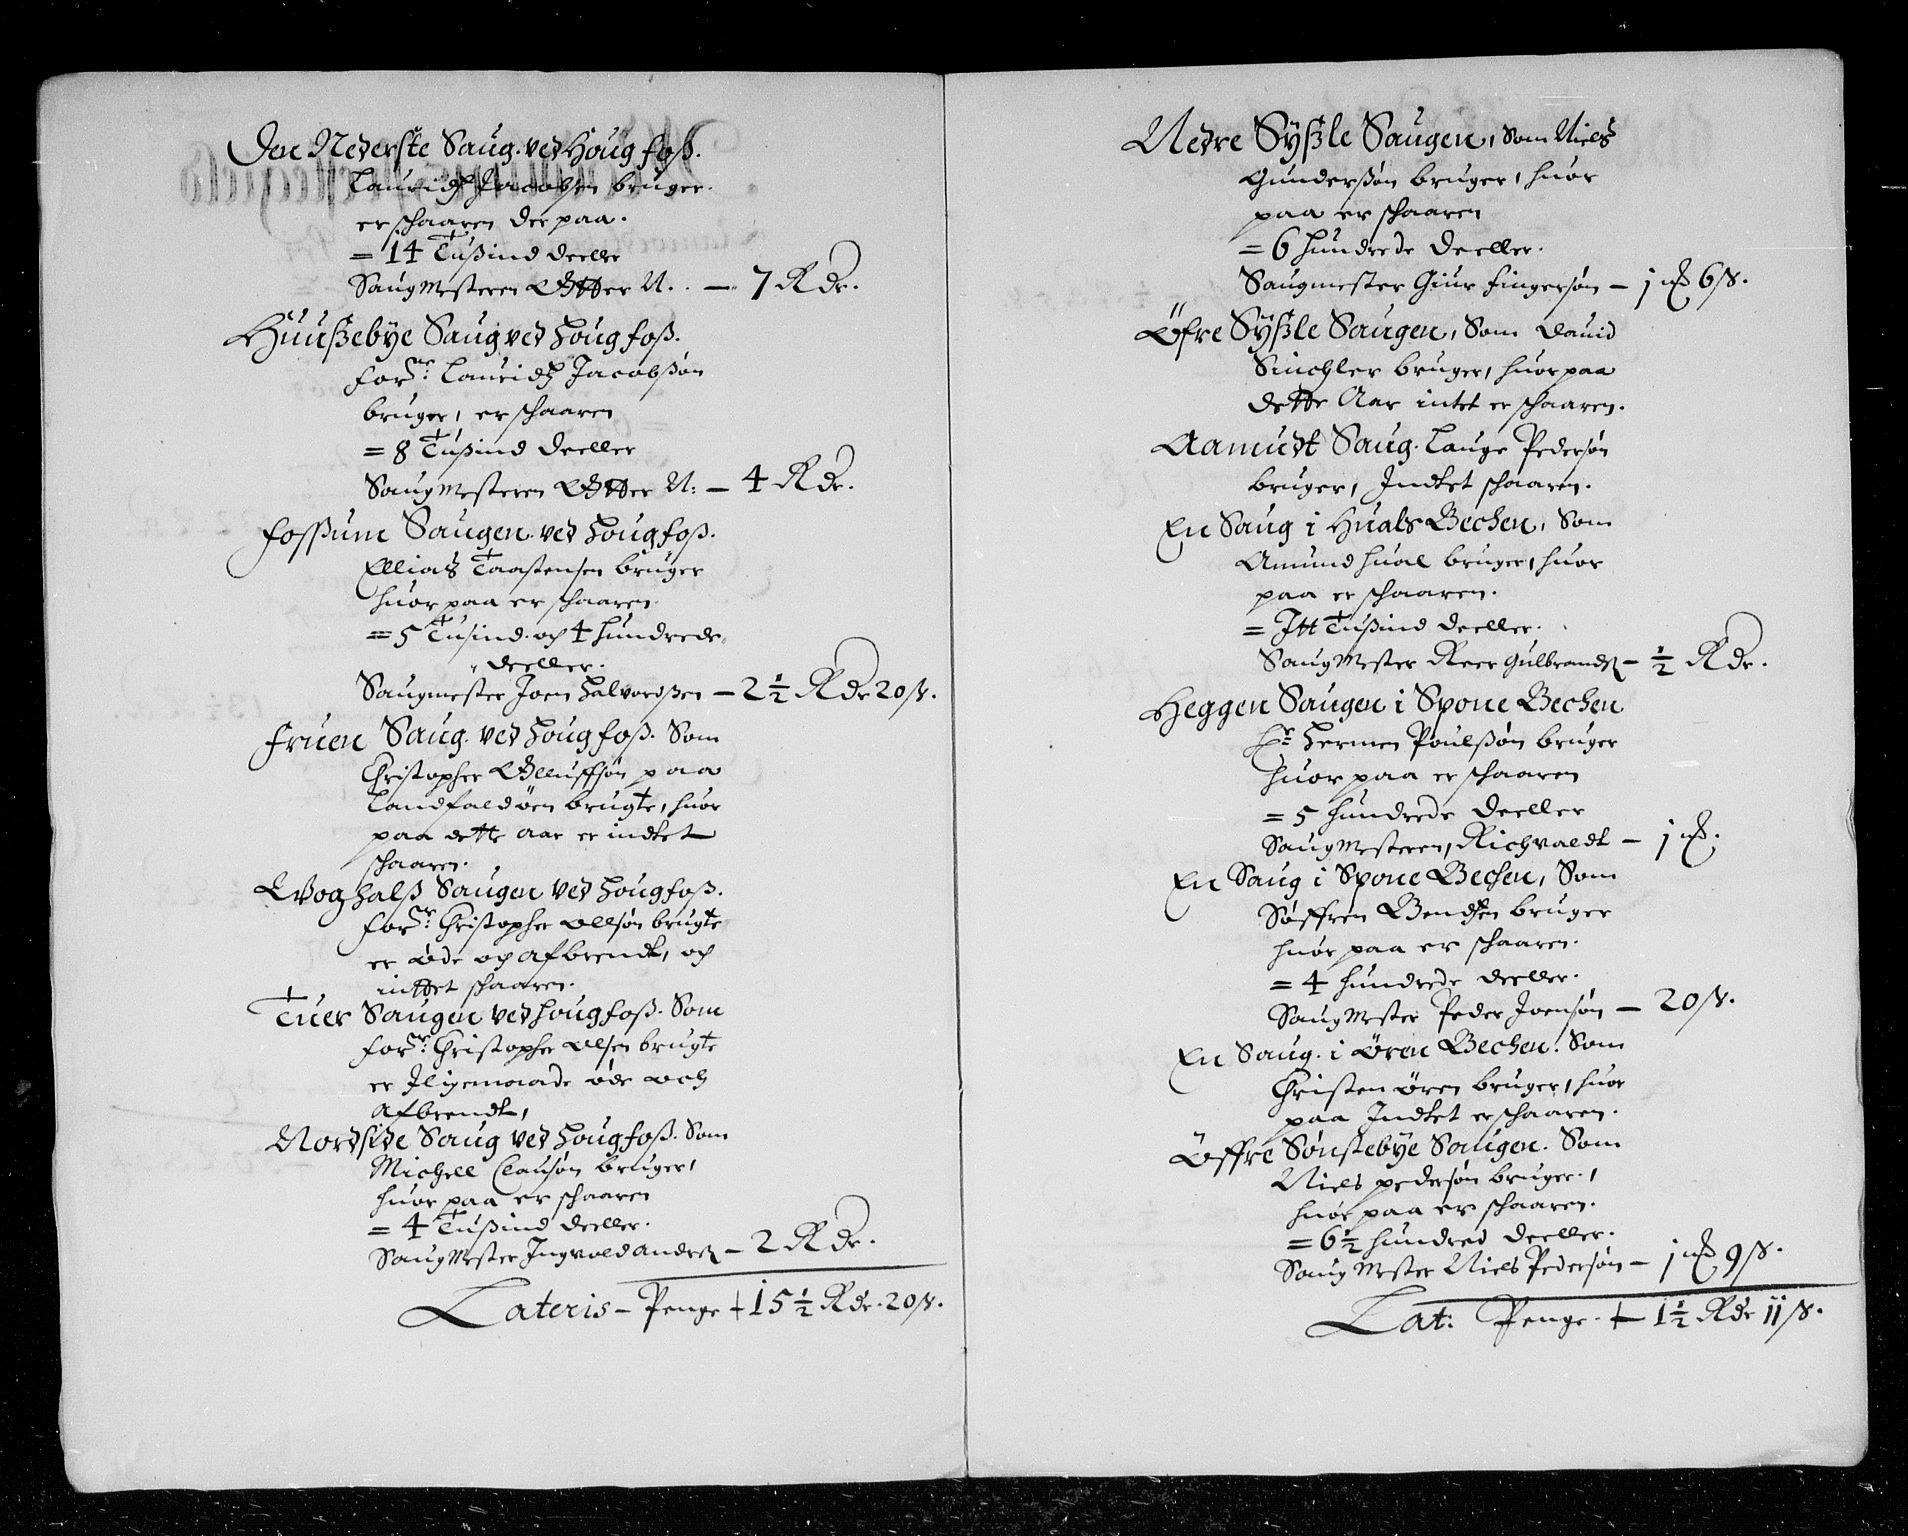 Den Nederste Saug. ved Houg foss.
Lauridz Jacobsen bruger.
er schaaren der paa.
= 14 Tusind deeller
Saugmesteren Otter N. . — 7 Rdr.
Huussebye Saug ved Houg foss.
forne: Lauridz Jacobsøn
bruger, er schaaren
= 8 Tusind deeller
Saugmesteren Otter N: — 4 Rdr.
Fossum Saugen. ved Houg foss.
Ellias Taastensen bruger
huor paa er schaaren.
= 5 Tusind. och 4 hundrede
deeller.
Saugmester Joen Halvordsen — 2½ Rdr 20 s.
Fruen Saug. ved Houg foss. Som
Christopher Olluffsøn paa
Landfaldøen brugte, huor
paa dette aar er indtet
schaaren.
Woghalss Saugen ved Houg foss.
forne: Christopher Ollsøn brugte
er øde och afbrendt, och
inttet schaaren.
Tuer Saugen ved Houg foss. Som
forne: Christopher Olsen brugte
er Jligemaade øde och
afbrendt,
Nordside Saug ved Houg foss. Som
Michell Clausøn bruger,
huor paa er schaaren
= 4 Tusind deeller.
Saugmester Ingvold Anderss — 2 Rdr.
Lateris — Penge + 15½ Rdr. 20 s.
Nedre Sysle Saugen, Som Niels
Gundersøn bruger, huor
paa er schaaren
= 6 hundrede deeller.
Saugmester Giur Fingersøn — j mk 6 s.
Öfre Sysle Saugen, Som David
Sinchler bruger, huor paa
dette Aar intet er schaaren.
Aamudt Saug. Lauge Pedersøn
bruger, Indtet schaaren.
En Saug i Huals Bechen, Som
Amund Hual bruger, huor
paa er schaaren.
= Itt Tusind deeller.
Saugmester Reer Gulbrands — ½ Rdr.
Heggen Saugen i Spone Bechen
Hr. Hermen Poulsøn bruger
huor paa er schaaren
= 5 hundrede deeller
Saugmesteren, Richvaldt — j mk.
En Saug i Spone Bechen, Som
Søffren Bendtsen bruger
huor paa er schaaren.
= 4 hundrede deeller.
Saugmester Peder Joensøn — 20 s.
En Saug. i Øren Bechen. Som
Christen Øren bruger, huor
paa Indtet er schaaren.
Öffre Sønstebye Saugen. Som
Niels Pedersøn bruger.,
huor paa er schaaren.
= 6½ hundred deeller.
Saugmester Niels Pedersøn — j mk 9 s.
Lat: Penge. + 1½ Rdr 11 s.